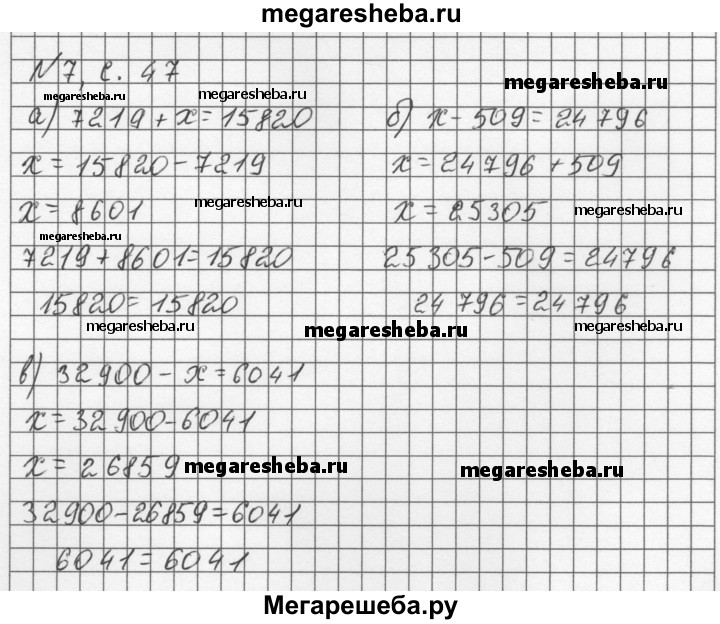 megaresheba.ru
№7, с. 47
megaresheba.ru
megaresheba.ru
megaresheba.ru
а) 7219 + x = 15820
б) x - 509 = 24796
x = 15820 - 7219
x = 24796 + 509
x = 8601
megaresheba.ru
x = 25305
megaresheba.ru
megaresheba.ru
7219 + 8601 = 15820
25305 - 509 = 24796
15820 = 15820
24796 = 24796
megaresheba.ru
megaresheba.ru
megaresheba.ru
в) 32900 - x = 6041
x = 32900 - 6041
x = 26859
megaresheba.ru
megaresheba.ru
32900 - 26859 = 6041
6041 = 6041
Мегарешеба.ру